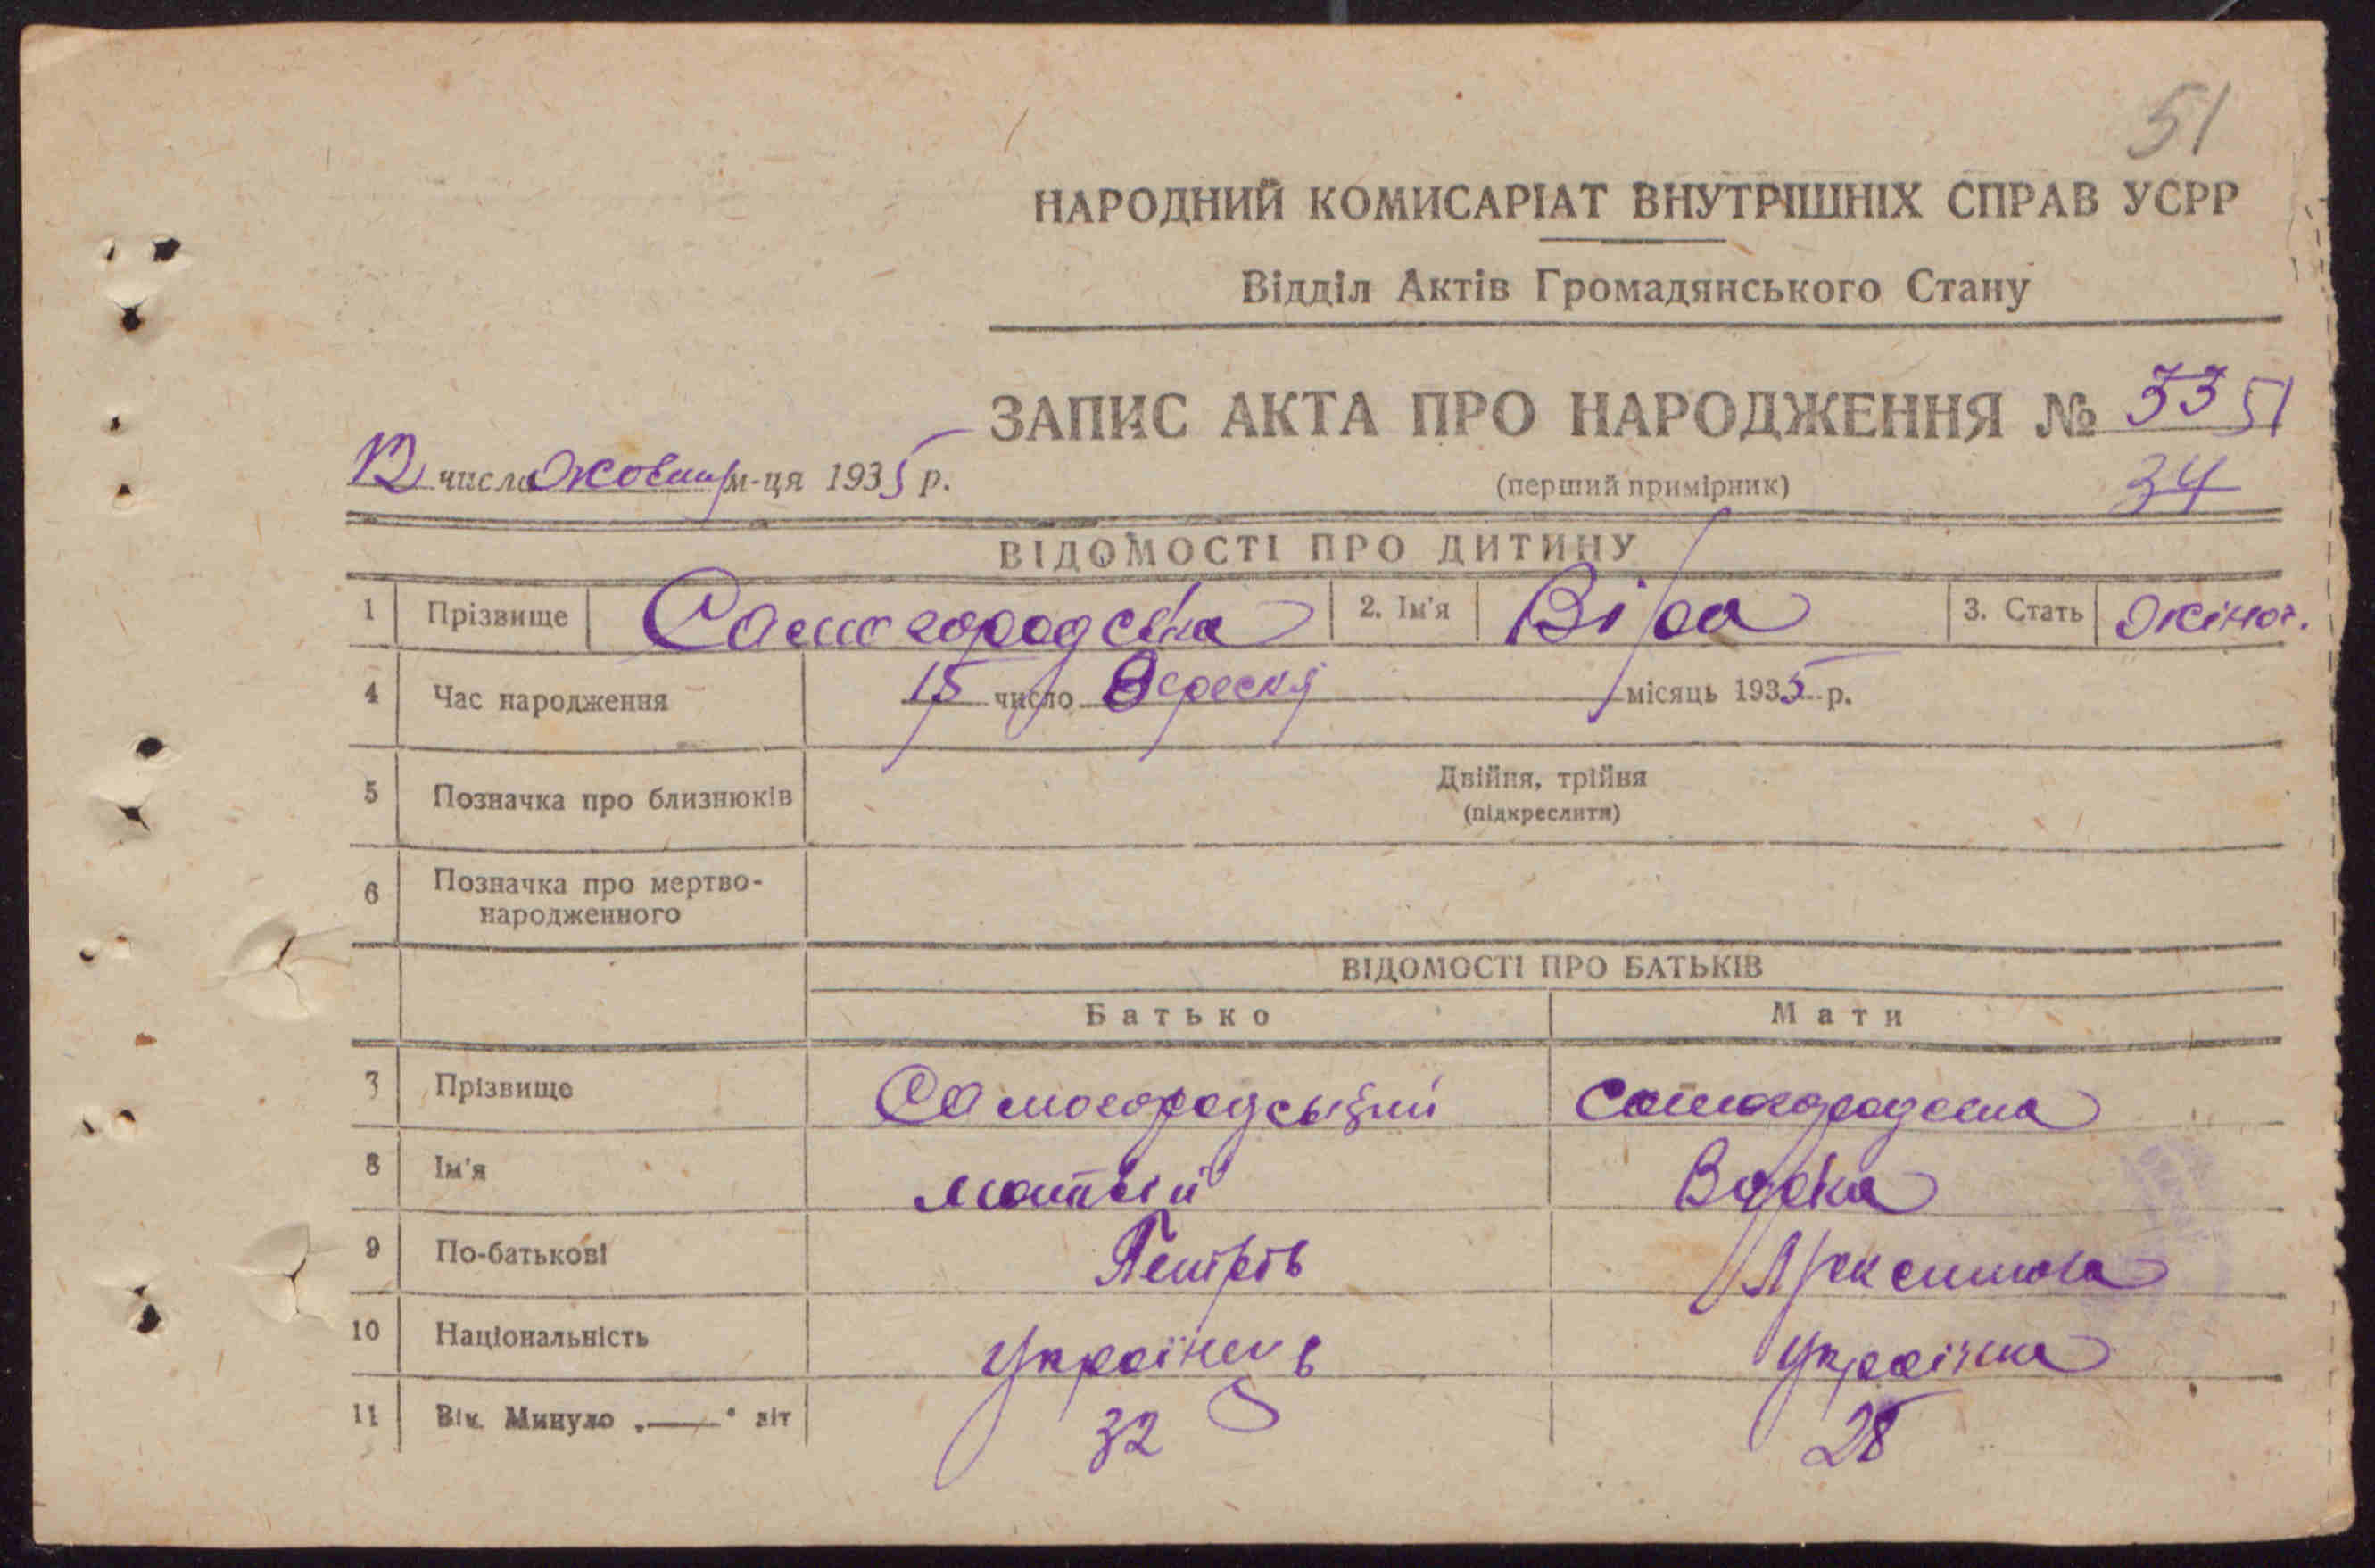 51
НАРОДНИЙ КОМИСАРІАТ ВНУТРІШНІХ СПРАВ УСРР
Відділ Актів Громадянського Стану
ЗАПИС АКТА ПРО НАРОДЖЕННЯ № 33 51
12 числа Жовтня м-ця 1935 р.
(перший примірник) 34
ВІДОМОСТІ ПРО ДИТИНУ
1 Прізвище Самогородська 2. Ім'я Віра 3. Стать жіноч.
4 Час народження 15 число Вересня місяць 1935 р.
5 Позначка про близнюків Двійня, трійня
(підкреслити)
6 Позначка про мертво-
народженного
ВІДОМОСТІ ПРО БАТЬКІВ
Батько Мати
7 Прізвище Самогородський Самогородська
8 Ім'я Матвій
9 По-батькові Петрів
10 Національність Українець Українка
11 Вік. Минуло „——“ літ 32 28